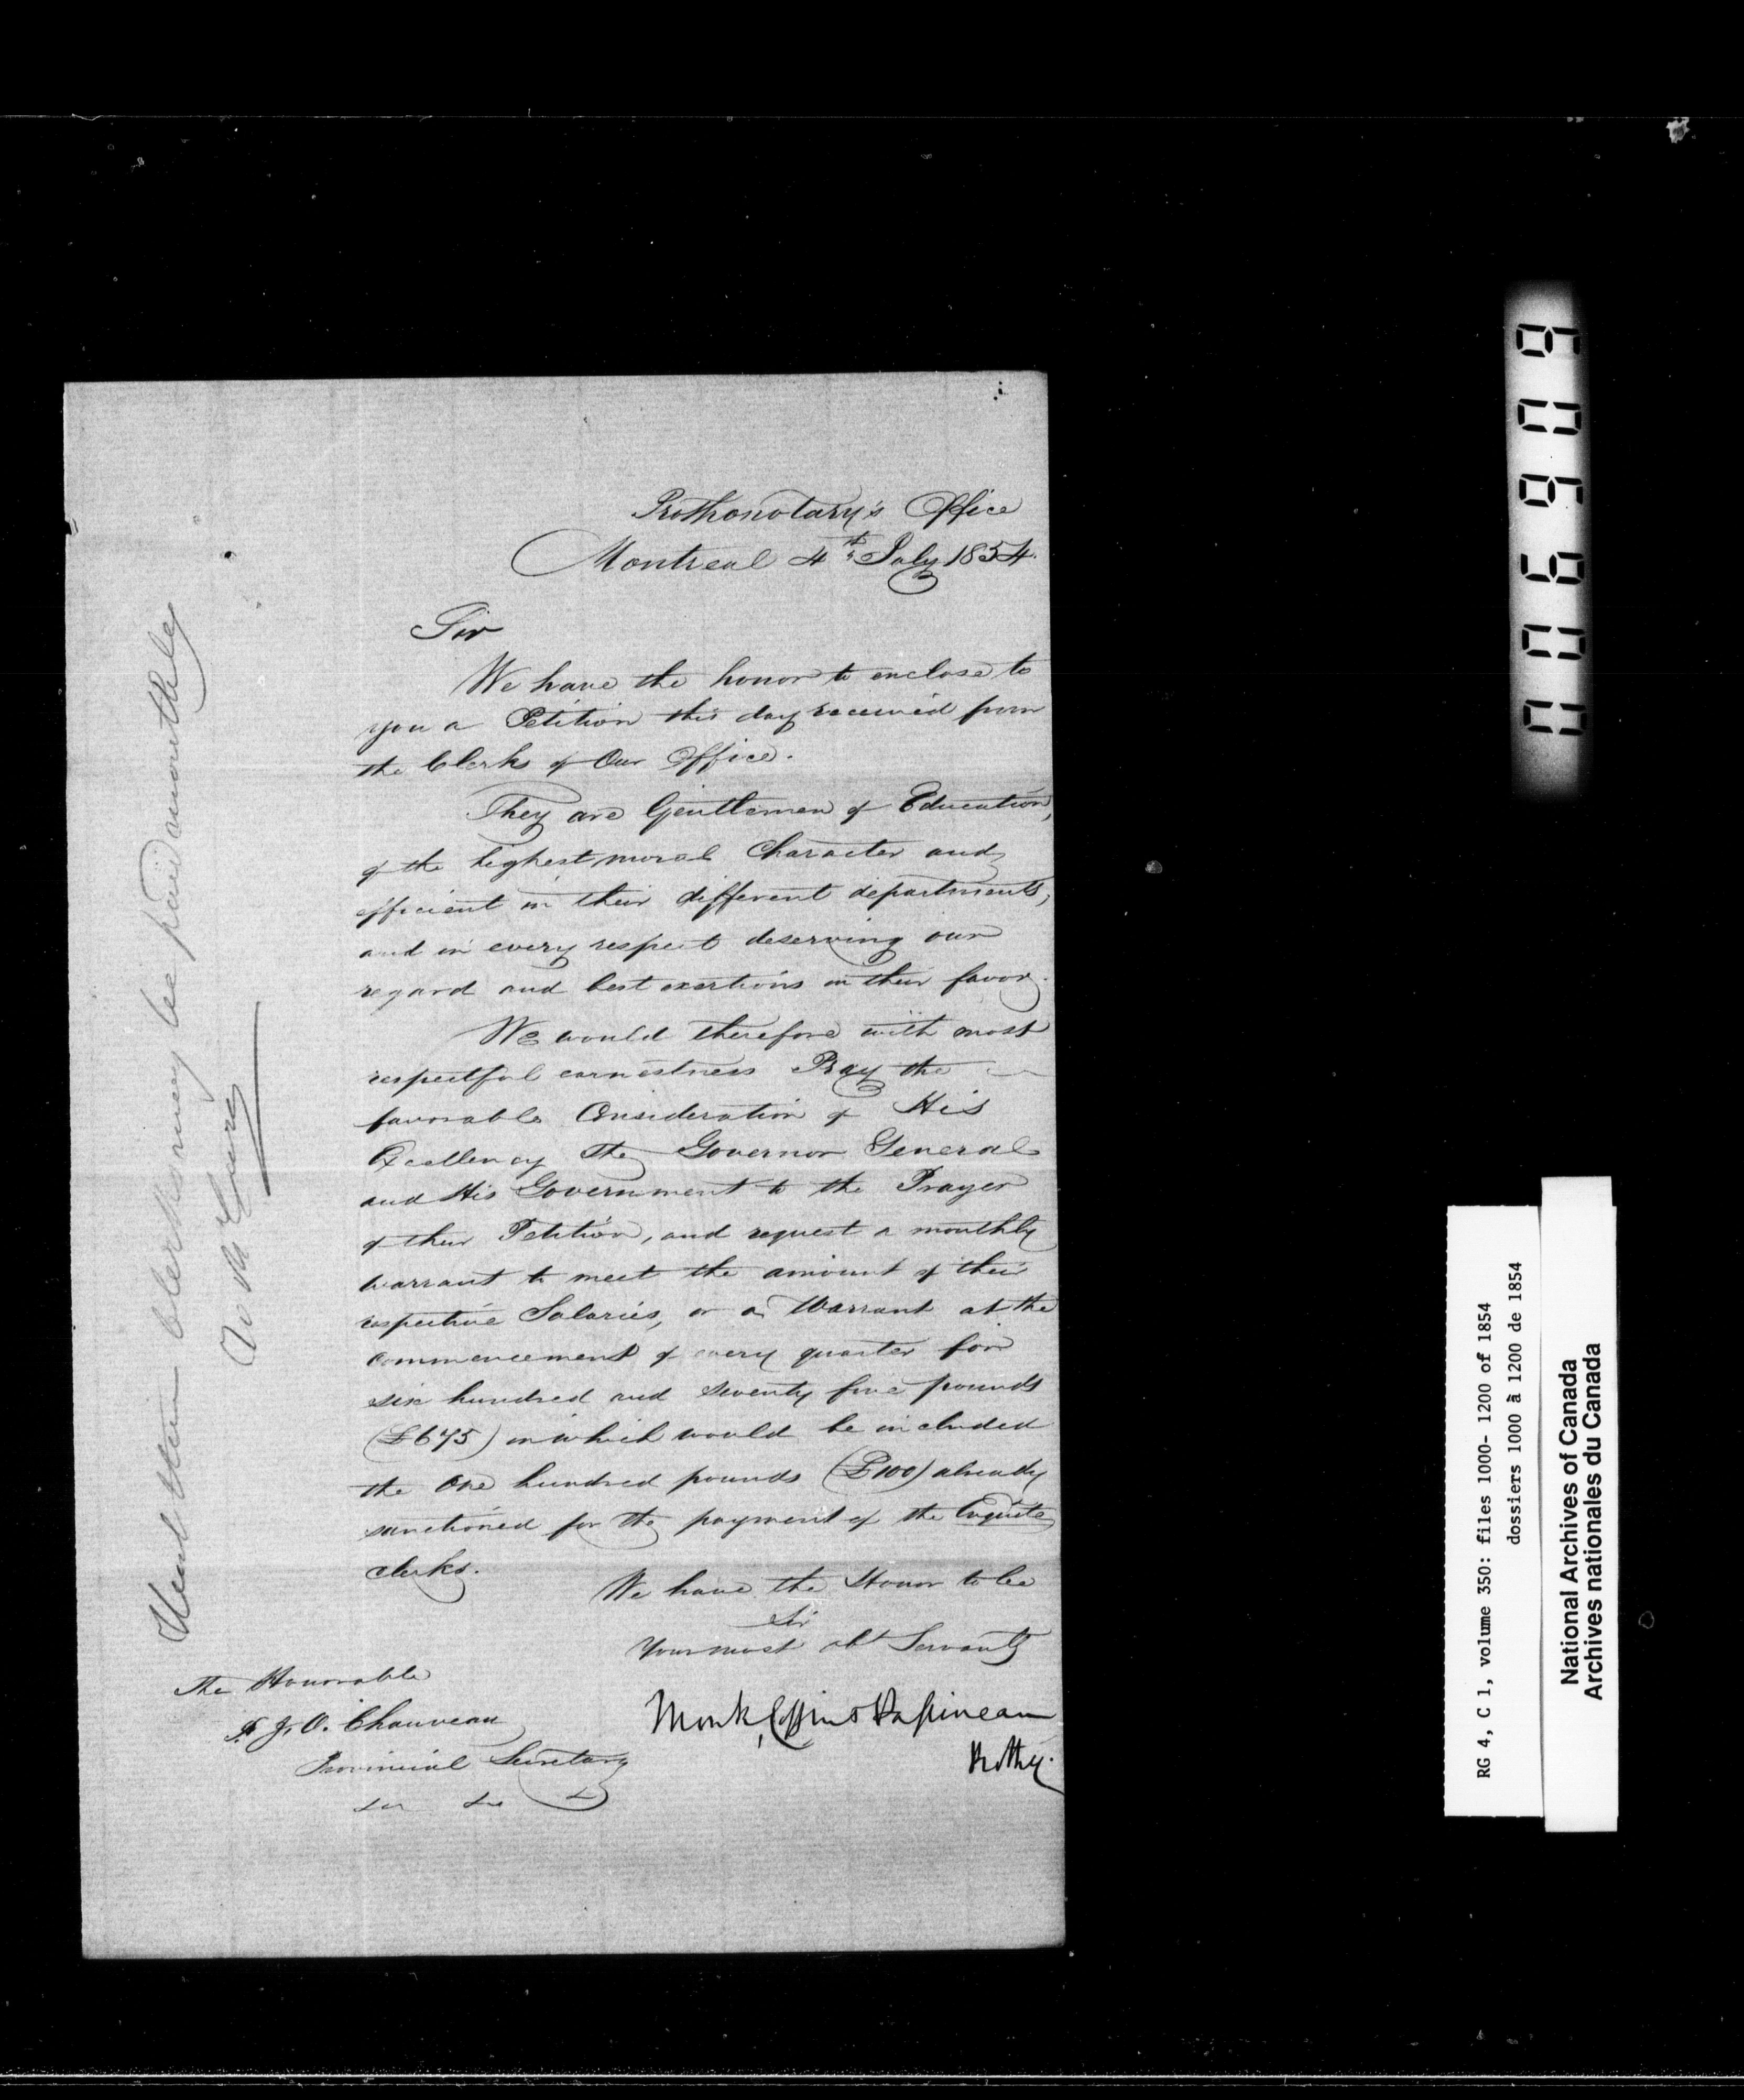 Prothonotary's Office
Montreal 4th July 1854.
Sir
We have the honor to enclose to
you a Petition this day received from
the Clerks of Our Office.
They are Gentlemen of Education,
of the highest moral Character and
efficient in their different departments,
and in every respect deserving our
regard and best exertions in their favor.
We would therefore with most
respectful earnestness Pray the
favorable Consideration of His
Excellency The Governor General
and His Government to the Prayer
of their Petition, and request a monthly
warrant to meet the amount of their
respective Salaries, or a Warrant at the
commencement of every quarter for
six hundred and seventy five pounds
(£675) in which would be included
the One hundred pounds (£100) already
sanctioned for the payment of the Enquête
clerks.
We have the Honor to be
Sir
Your most obt Servants
Monk, Coffin & Papineau
Prothy.
The Honorable
P. J. O. Chauveau
Provincial Secretary
&c &c &c
clerks may be paid monthly
RG 4, C 1, volume 350: files 1000- 1200 of 1854
dossiers 1000 à 1200 de 1854
National Archives of Canada
Archives nationales du Canada